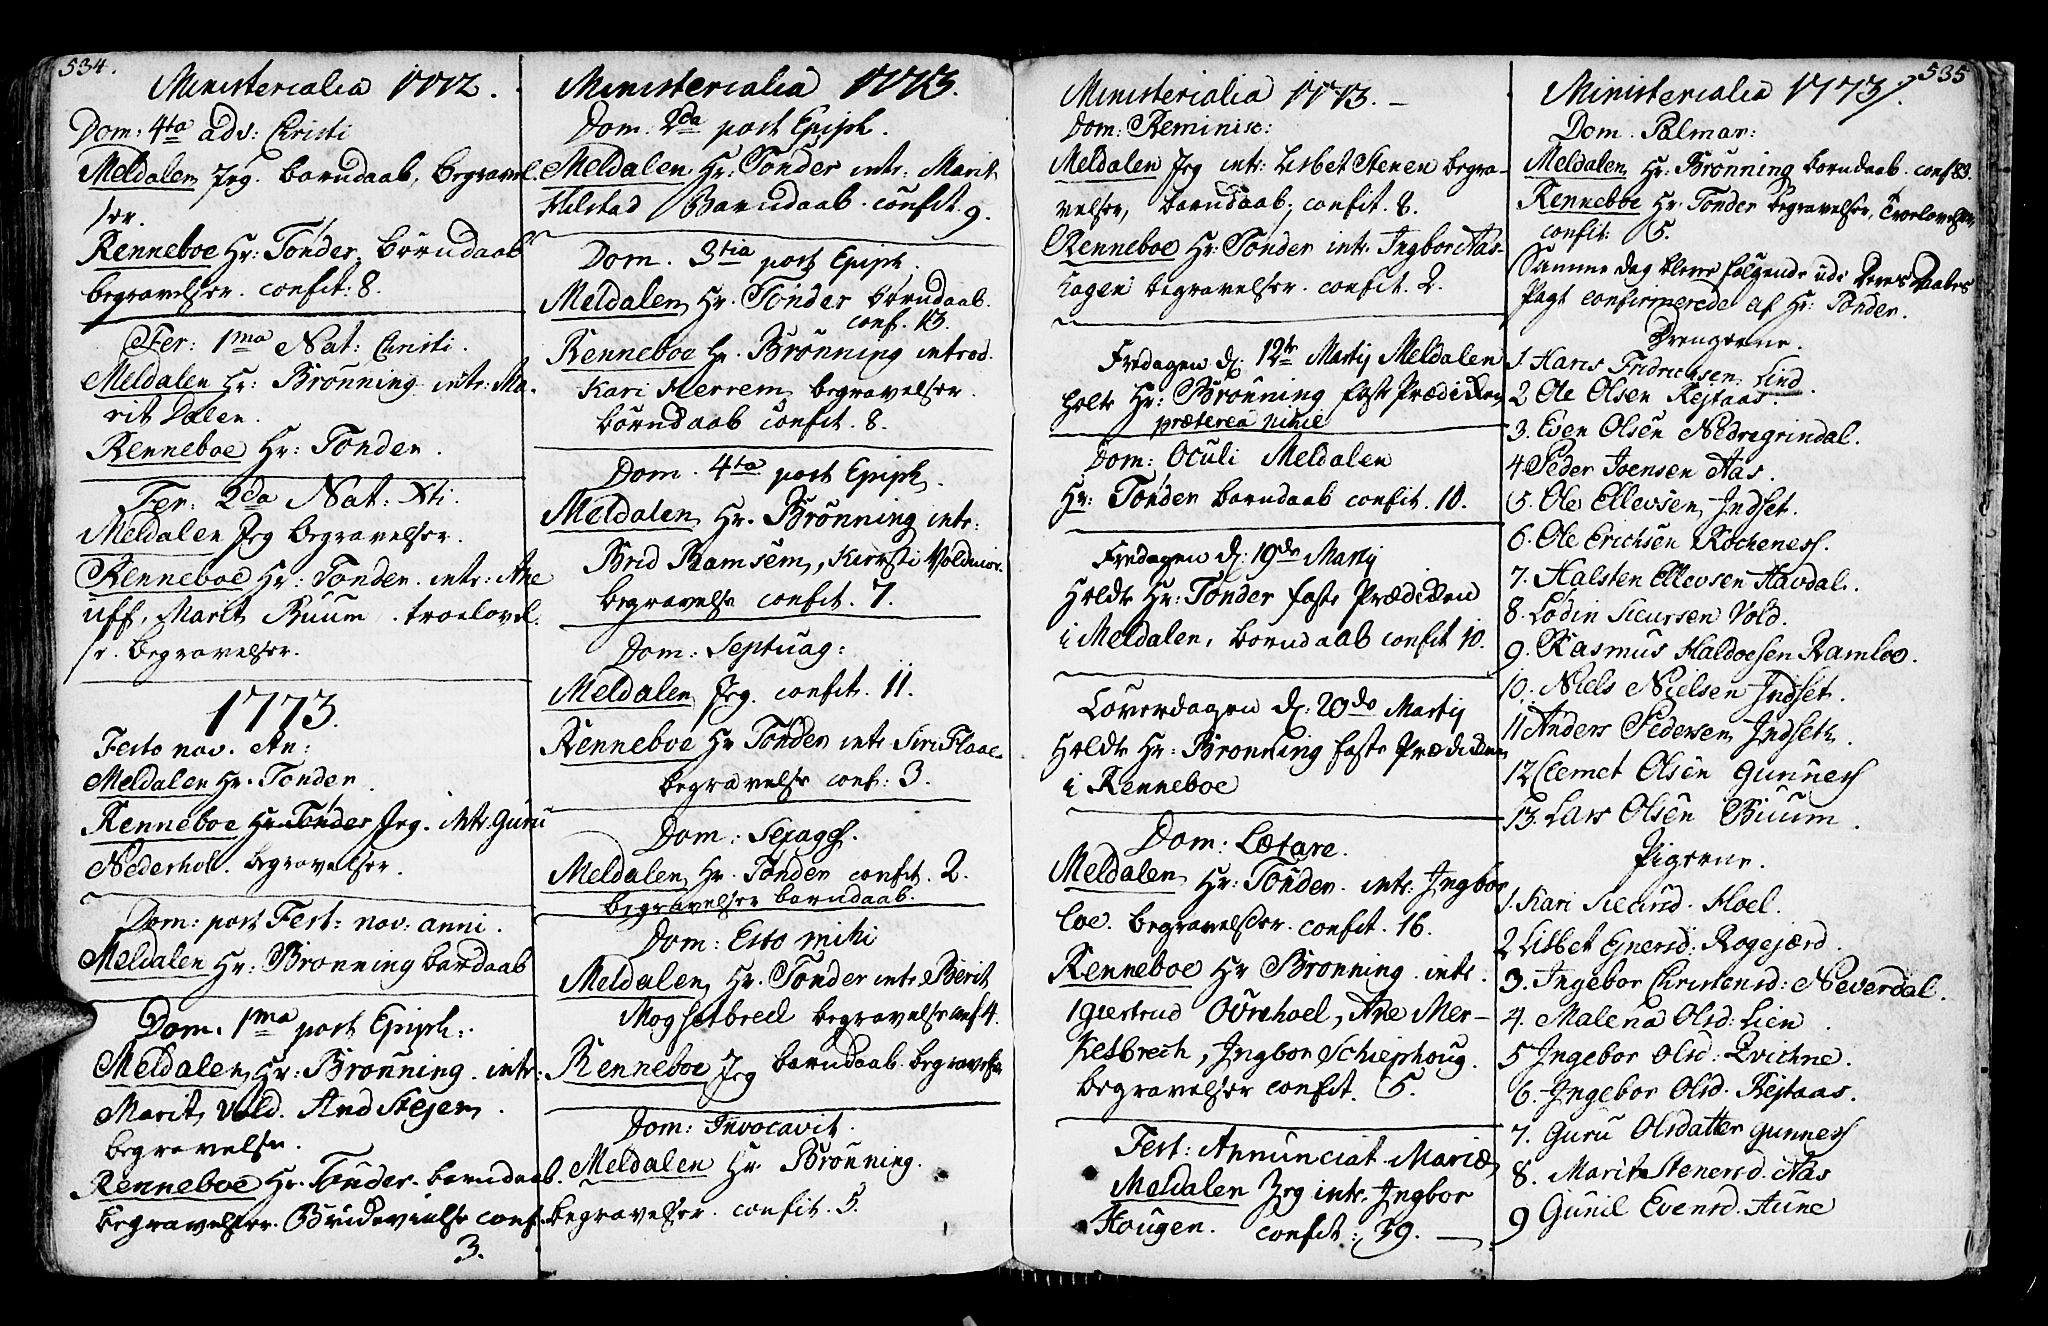 534.
Ministerialia 1772.
Dom: 4ta adv: Christi
Meldalen Jeg. barndaab, begravel-
ser.
Renneboe Hr: Tønder. børndaab
begravelser. confit: 8.
Fer: 1ma Nat: Christi.
Meldalen Hr: Brønning intr: Ma-
rit Dalen.
Renneboe Hr: Tønder.
Fer: 2da Nat: Xti.
Meldalen Jeg begravelser.
Renneboe Hr: Tønder. intr: Ane
Uff, Marit Buum. troelovel.
sr. begravelser.
1773.
Festo nov. An:
Meldalen Hr. Tønder
Renneboe Hr: Tønder Jeg. intr. Guru
Nederhol. begravelser.
Dom: post Fest: nov: anni.
Meldalen Hr: Brønning barndaab
Dom. 1ma post Epiph:
Meldalen Hr: Brønning. intr:
Marit Vold. And Stejen.
begravelse.
Renneboe Hr. Tønder. barndaab.
begravelser. Brudevielse conf.
3.
Ministerialia 1773.
Dom: 2da post Epiph.
Meldalen Hr: Tønder intr: Marit
Hilstad / Barndaab. confit. 9.
Dom. 3tia post Epiph.
Meldalen Hr. Tønder børndaab.
conf. 13.
Renneboe Hr. Brønning introd.
Kari Herrem begravelser.
børndaab confit. 8.
Dom. 4ta post Epiph.
Meldalen Hr. Brønning intr:
Brid Ramsem, Kiersti Voldmoe.
begravelse confit. 7.
Dom: Septuag:
Meldalen Jeg. confit. 11.
Renneboe Hr Tønder intr Siri Flaae.
begravelse conf: 3.
Dom: Sexages.
Meldalen Hr. Tønder confit. 2.
begravelser barndaab.
Dom: Esto mihi
Meldalen Hr. Tønder intr Berit
Mogsetbred begravelse conf 4.
Renneboe Jeg barndaab. begravelse
Dom: Invocavit.
Meldalen Hr. Brønning.
begravelser. confit. 5.
Ministerialia 1773. –
Dom: Reminisc:
Meldalen Jeg intr: Lisbet Stenen begra-
velser, barndaab, confit. 8.
Renneboe Hr: Tønder intr: Ingbor Aas-
Hagen begravelser. confit. 2.
Fredagen d: 12te Martij Meldalen
holte Hr: Brønning faste Prædiken
præterea nihil
Dom: Oculi Meldalen
Hr: Tønder barndaab confit. 10.
Fredagen d: 19de Martij
Holdt Hr: Tønder faste Prædiken
i Meldalen, barndaab confit 10.
Løverdagen d: 20de Martij
Holdt Hr: Brønning faste Prædiken
i Renneboe
Dom: Lætare.
Meldalen Hr: Tønder. intr: Ingbor
Loe. begravelser. confit. 16.
Renneboe Hr Brønning. intr.
Giertrud Ourehoel, Ane Mer-
kesbrech, Ingbor Schiephoug.
begravelser confit. 5.
Fest: Annunciat Mariæ
Meldalen Jeg intr. Ingbor
Hougen. confit: 39. –
535
Ministerialia 1773.
Dom. Palmar:
Meldalen Hr. Brønning barndaab. conf 83.
Renneboe Hr. Tønder begravelser, Troelovelser
confit: 5.
Samme dag bleve følgende udi Deres Daabes
Pagt confirmerede af Hr: Tønder.
Drengerne.
1. Hans Fridrichsen Lind
2 Ole Olsen Rejtaas.
3. Even Olsen Nedregrindal.
4 Peder Joensen Aas.
5. Ole Ellevsen Indset.
6. Ole Erichsen Rocheness.
7. Halsten Ellevsen Havdal.
8. Lodin Siursen Vold.
9. Rasmus Haldoesen Ramloe.
10. Niels Nielsen Indset.
11 Anders Pedersen Indseth.
12 Clemet Olsen Gunness
13. Lars Olsen Buum.
Pigerne.
1. Kari Siursd. Hoel.
2 Lisbet Ejnersd. Rogejærd.
3. Ingebor Christensd: Neverdal.
4. Malena Olsd: Lien.
5 Ingebor Olsd: Qvichne.
6. Ingebor Olsd. Rejtaas.
7. Guru Olsdatter Gunness
8. Marit Stenersd. Aas
9 Gunil Evensd. Aune